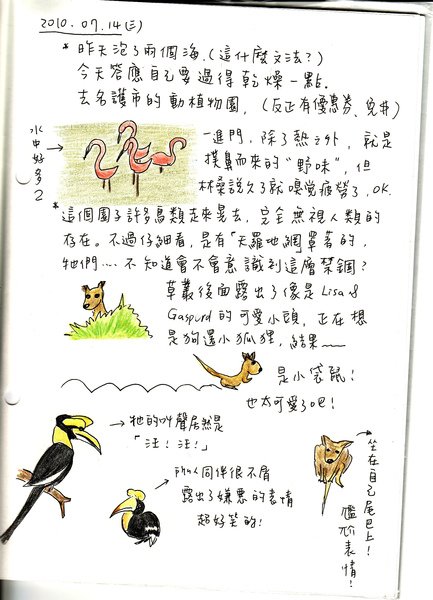 2010.07.14(三)
*昨天泡了兩個海.(這什麼文法?)
今天答應自己要過得乾燥一點.
去名護市的動植物園,(反正有優惠券、免井)
水中好多2→
一進門,除了熱之外,就是
撲鼻而來的"野味",但
林桑說久了就嗅覺疲勞了,OK.
*這個園子許多鳥類走來晃去,完全無視人類的
存在。不過仔細看,是有「天羅地網罩著的,
牠們……不知道會不會意識到這層禁錮?
草叢後面露出了像是Lisa &
Gaspard的可愛小頭,正在想
是狗還小狐狸,結果~~
是小袋鼠!
也太可愛了吧!
→牠的叫聲居然是
「汪!汪!」
所以同伴很不屑
露出了嫌惡的表情
超好笑的!
坐在自己尾巴上!
尷尬表情!